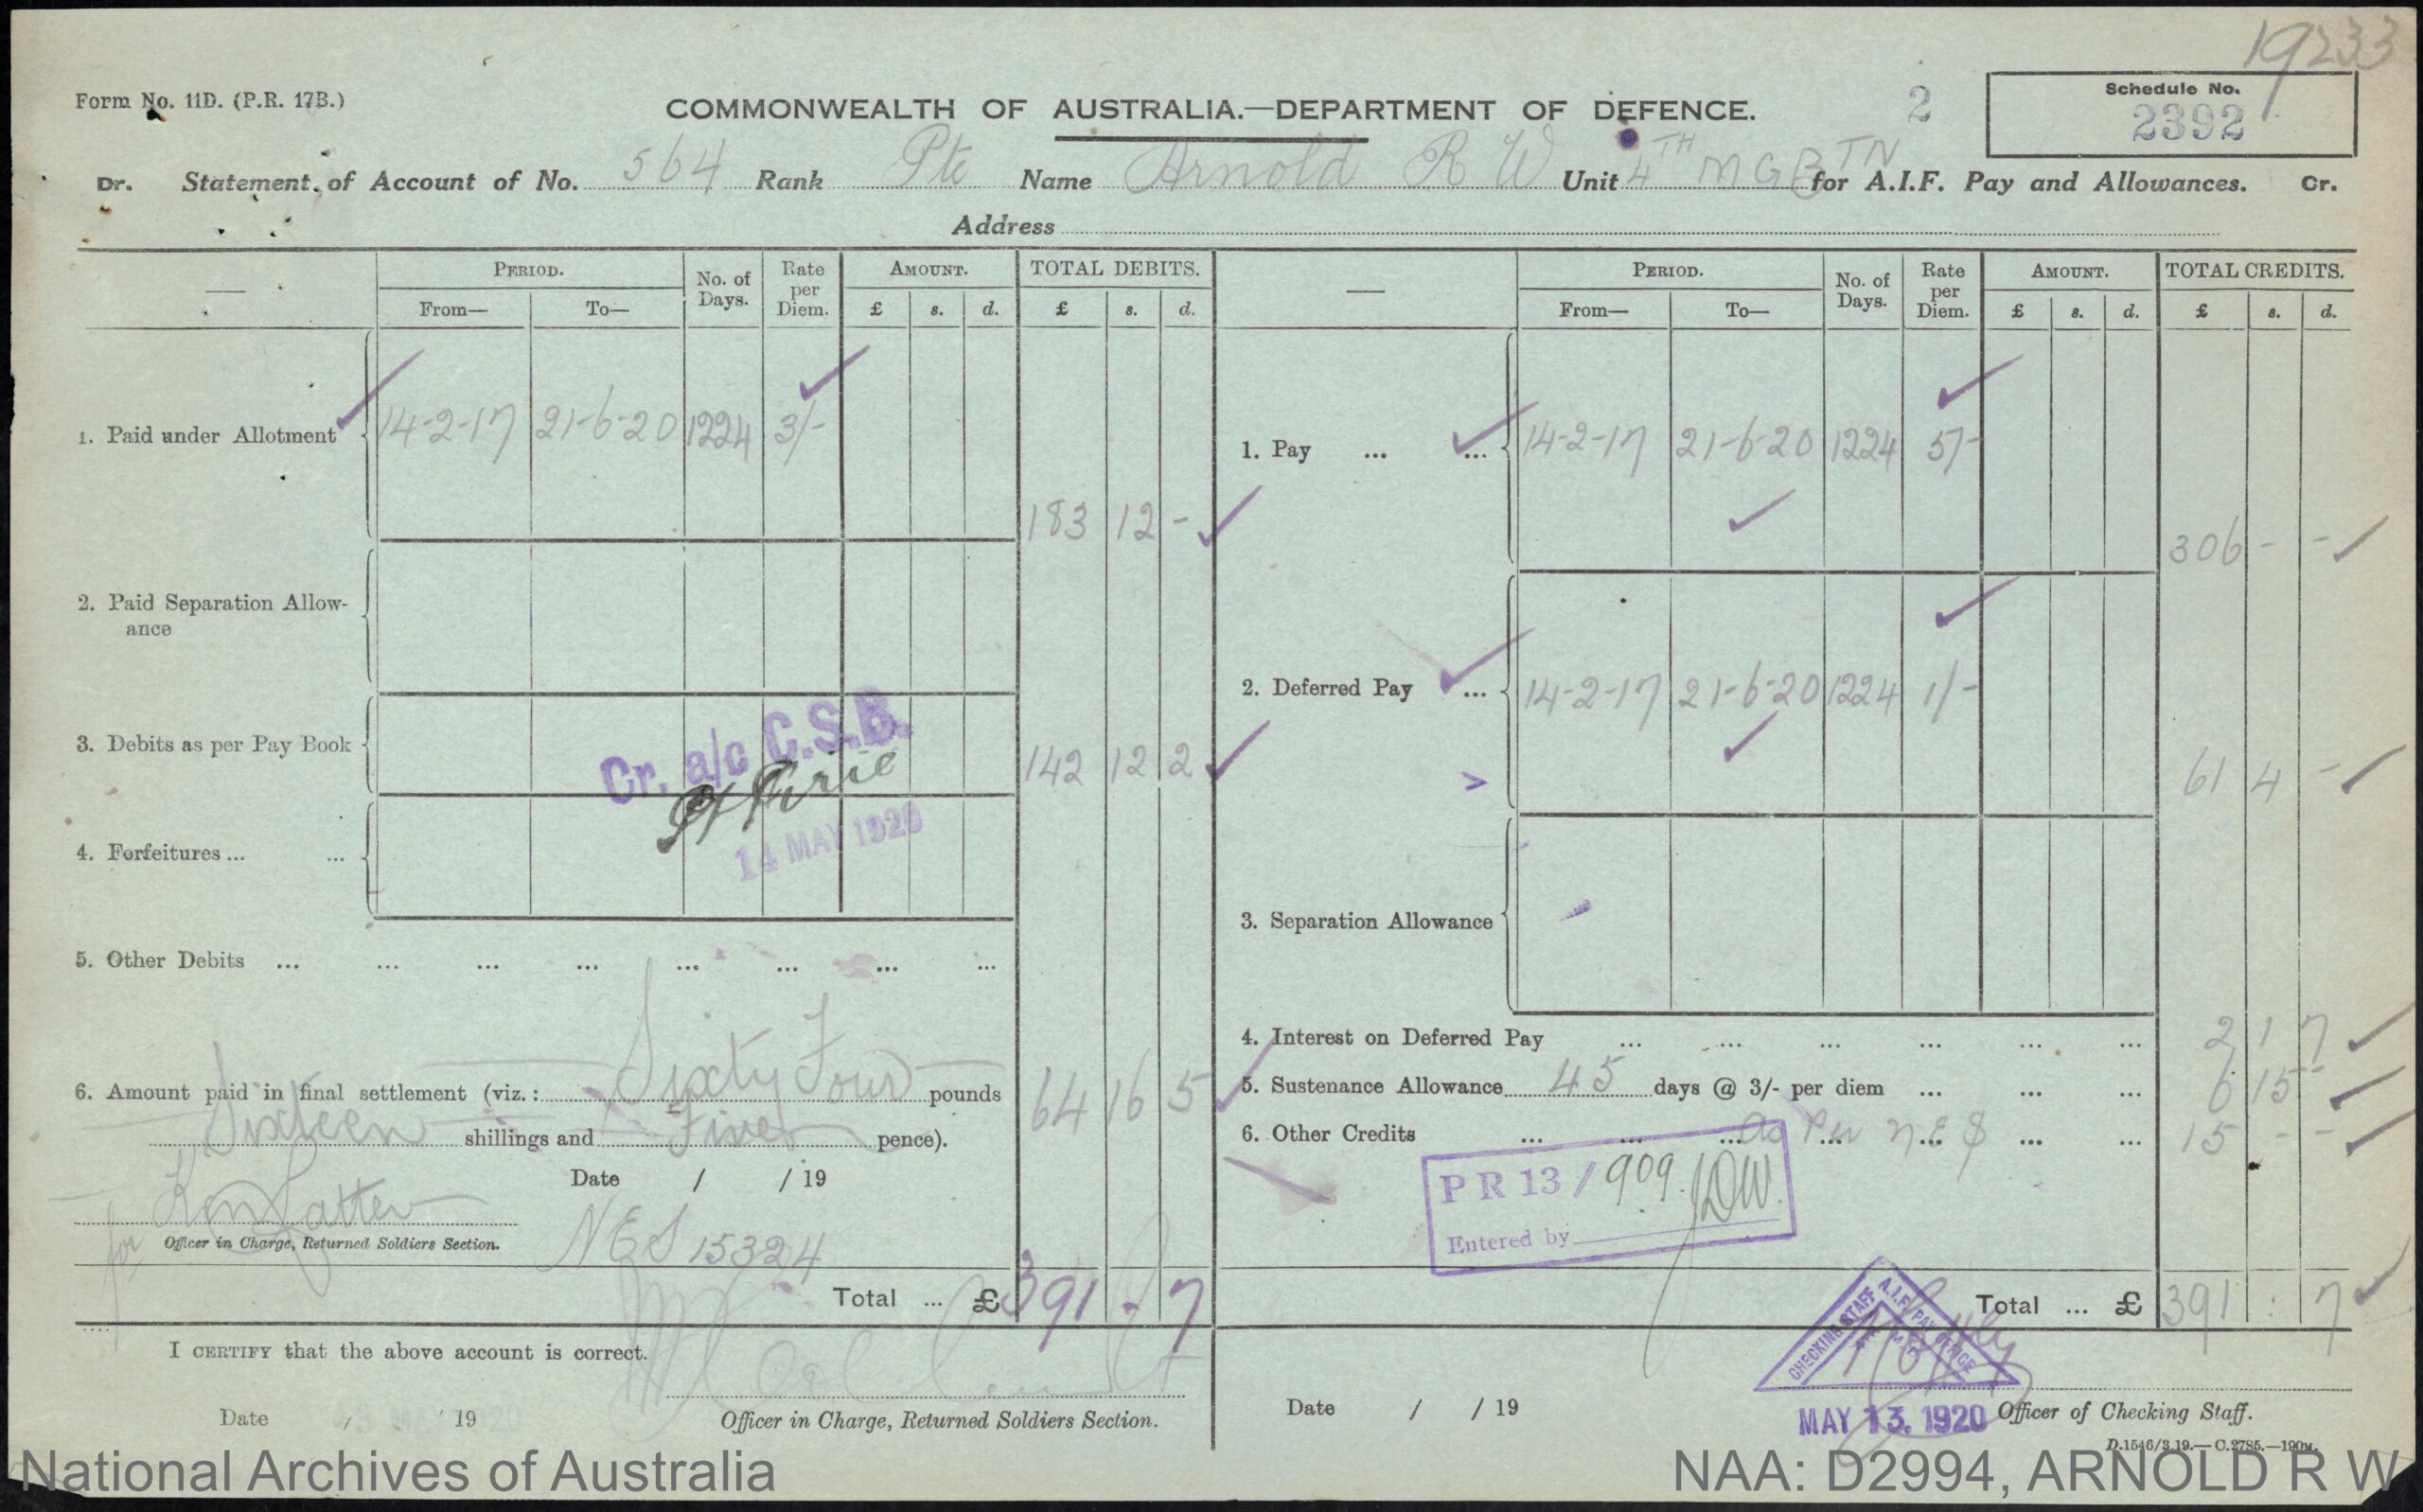 19233
Form No. 11D. (P.R. 17B.)
COMMONWEALTH OF AUSTRALIA.—DEPARTMENT OF DEFENCE.
2
Schedule No.
2392
Dr. Statement of Account of No. 564 Rank Pte Name Arnold R W Unit 4TH M G BTN for A.I.F. Pay and Allowances. Cr.
Address
— PERIOD. No. of Days. Rate per Diem. AMOUNT. TOTAL DEBITS.
From— To— £ s. d. £ s. d.
1. Paid under Allotment 14-2-17 21-6-20 1224 3/-
183 12 -
2. Paid Separation Allowance
3. Debits as per Pay Book 142 12 2
Cr. a/c C.S.B.
14 MAY 1920
4. Forfeitures ... ...
5. Other Debits ... ... ... ... ... ... ... ...
6. Amount paid in final settlement (viz.: Sixty Four pounds 64 16 5
Sixteen shillings and Five pence).
Date / / 19
for
Officer in Charge, Returned Soldiers Section.
NES 15324
Total ... £ 391 - 7
I CERTIFY that the above account is correct.
Date / 19
Officer in Charge, Returned Soldiers Section.
— PERIOD. No. of Days. Rate per Diem. AMOUNT. TOTAL CREDITS.
From— To— £ s. d. £ s. d.
1. Pay ... ... 14-2-17 21-6-20 1224 5/-
306 - -
2. Deferred Pay ... 14-2-17 21-6-20 1224 1/-
61 4 -
3. Separation Allowance
4. Interest on Deferred Pay ... ... ... ... ... ... 2 1 7
5. Sustenance Allowance 45 days @ 3/- per diem ... ... ... 6 15 -
6. Other Credits ... ... ... as Per N E S ... ... 15 - -
P R 13 / 909 JDW.
Entered by
Total ... £ 391 : 7
CHECKING STAFF A.I.F. PAY OFFICE
Date / / 19
MAY 13. 1920
Officer of Checking Staff.
D.1546/3.19.—C.2785.—190M.
National Archives of Australia
NAA: D2994, ARNOLD R W